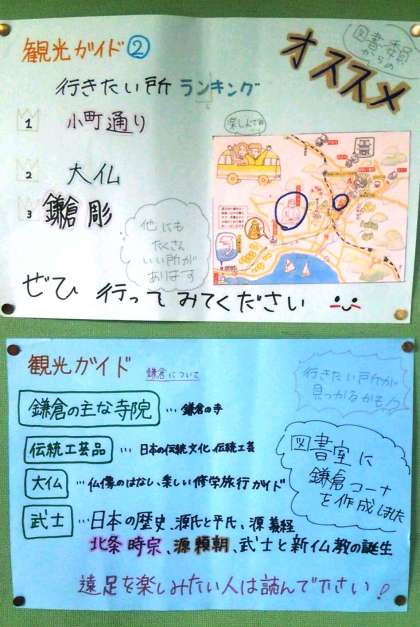 観光ガイド②
図書委員
からの
オススメ
行きたい所 ランキング
1 小町通り
楽しんでね
2 大仏
3 鎌倉彫
他にも
たくさん
いい所が
あります
ぜひ 行ってみてください
観光ガイド 鎌倉について
行きたい所が
見つかるかも♪
鎌倉の主な寺院 … 鎌倉の寺
伝統工芸品 … 日本の伝統文化、伝統工芸
大仏 … 仏像のはなし、楽しい修学旅行ガイド
図書室に
鎌倉コーナー
を作成しました
武士 … 日本の歴史、源氏と平氏、源義経
北条時宗、源頼朝、武士と新仏教の誕生
遠足を楽しみたい人は読んで下さい!